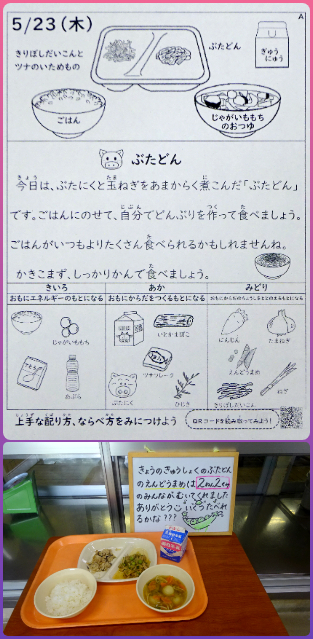 A
5/23(木)
きりぼしだいこんと
ツナのいためもの
ぶたどん
ぎゅう
にゅう
ごはん
じゃがいももち
のおつゆ
ぶたどん
今日は、ぶたにくと玉ねぎをあまからく煮こんだ「ぶたどん」
です。ごはんにのせて、自分でどんぶりを作って食べましょう。
ごはんがいつもよりたくさん食べられるかもしれませんね。
かきこまず、しっかりかんで食べましょう。
きいろ
おもにエネルギーのもとになる
あか
おもにからだをつくるもとになる
みどり
おもにからだのちょうしをととのえるもとになる
じゃがいももち
あぶら
いとかまぼこ
ツナフレーク
ぶたにく
ひじき
にんじん
たまねぎ
えんどうまめ
きりぼしだいこん
ねぎ
上手な配り方、ならべ方をみにつけよう
QRコードを読み取ってみよう!
きょうのきゅうしょくのぶたどん
のえんどうまめは2ねん2くみ
のみんながむいてくれました
ありがとう
いくつたべれ
るかな???